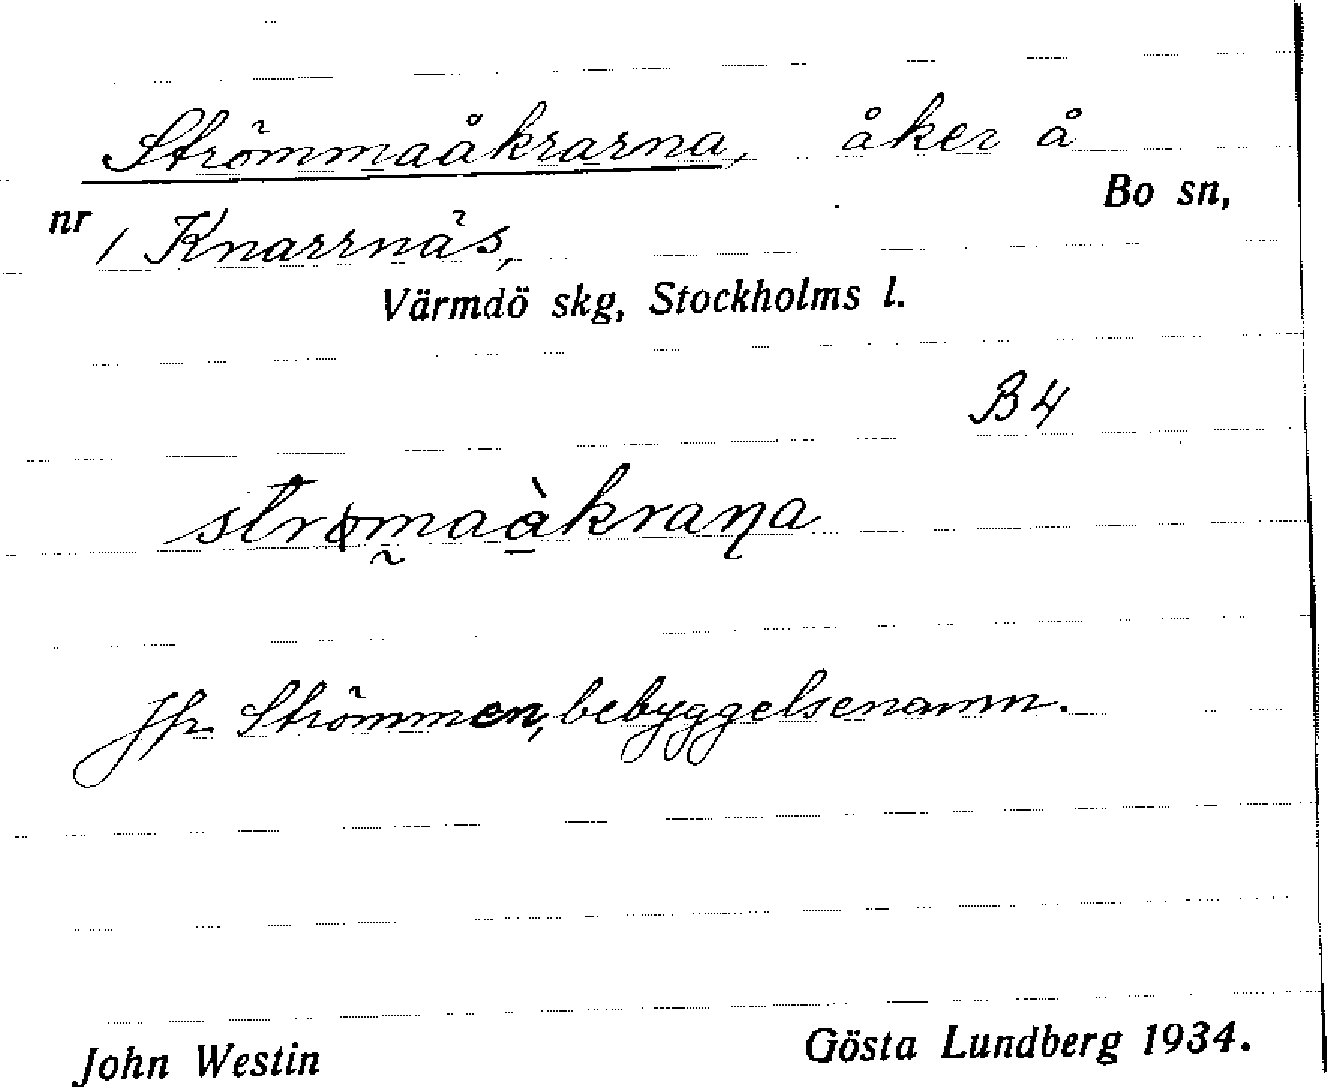 Strömmaåkrarna, åker å
Bo sn,
nr 1 Knarrnäs,
Värmdö skg, Stockholms l.
B4
strøm̰aå̠̀kraɳa
Jfr Strömmen, bebyggelsenamn.
John Westin
Gösta Lundberg 1934.